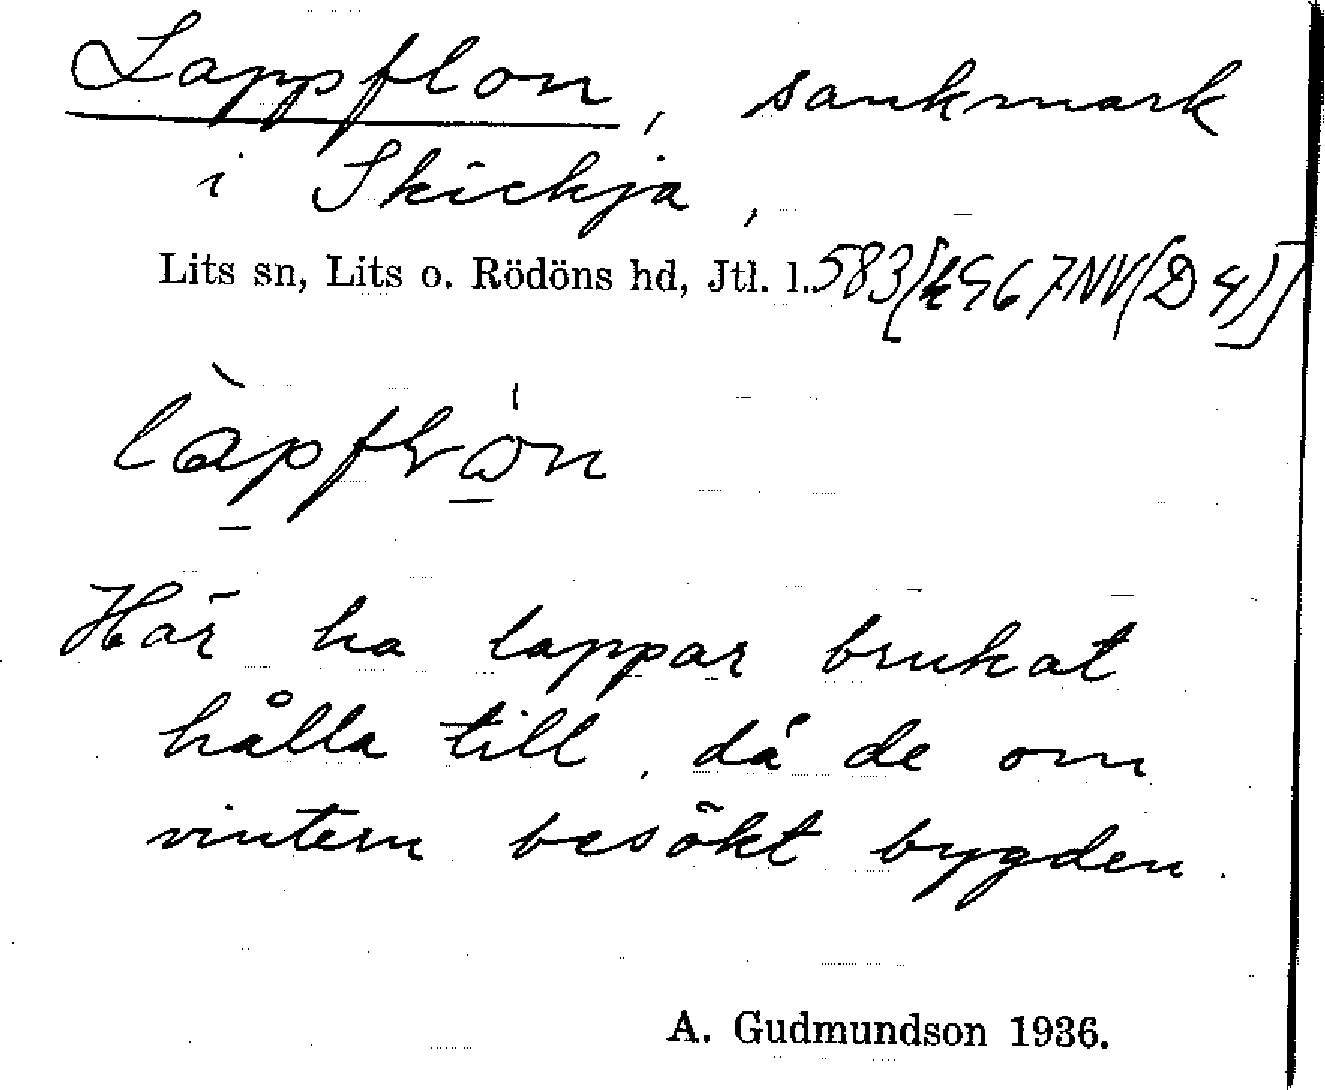 Lappflon, sankmark
i Skickja,
Lits sn, Lits o. Rödöns hd, Jtl. l. 583
Här ha lappar brukat
hålla till, då de om
vintern besökt bygden.
A. Gudmundson 1936.